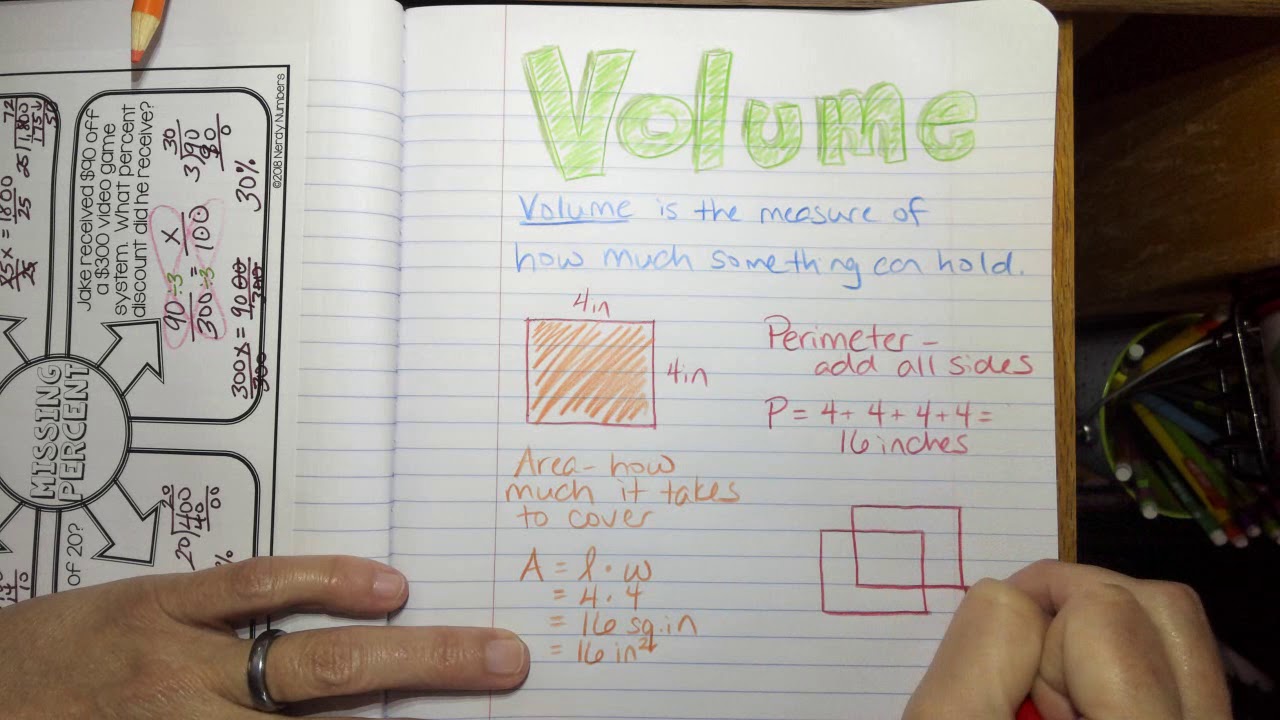 Volume
Volume is the measure of
how much something can hold.
4in
4in
Perimeter -
add all sides
P = 4 + 4 + 4 + 4 =
16 inches
Area - how
much it takes
to cover
A = l · w
= 4 · 4
= 16 sq.in
= 16 in²
Jake received $90 off
a $300 video game
system. What percent
discount did he receive?
90 ÷3 = x
300 ÷3 100
300x = 9000
300 300
30
3)90
90
0
30%
©2018 Nerdy Numbers
MISSING
PERCENT
25x = 1800
25 25
72
25)1,800
175↓
50
of 20?
20
20)400
40
00
%